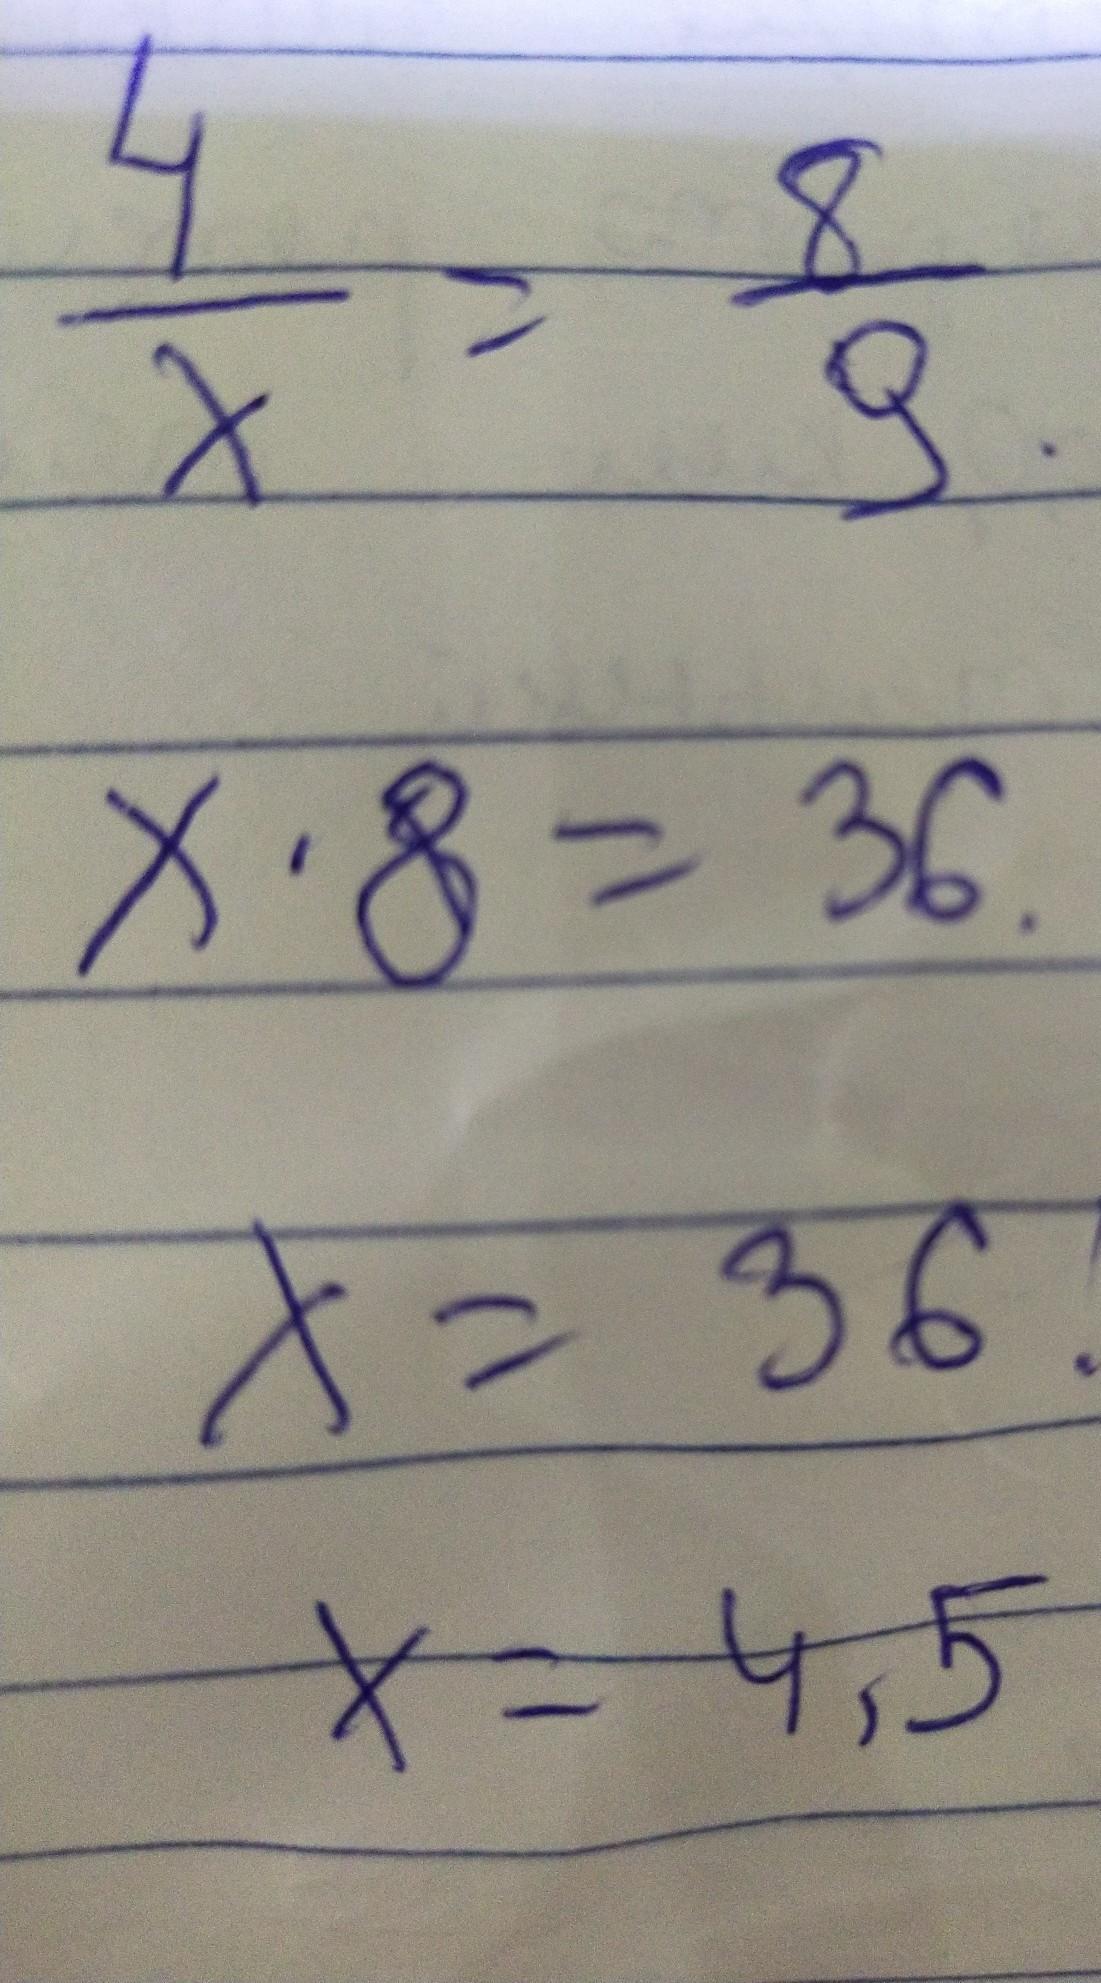 4/x = 8/9.
x · 8 = 36.
x = 36
x = 4,5